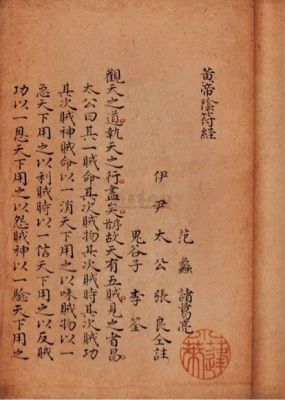 黄帝陰符経
范蠡 諸葛亮
伊尹 太公 張良仝註
鬼谷子 李筌
觀天之道執天之行盡矣故天有五賊見之者昌
太公曰其一賊命其次賊物其次賊時其次賊功
其次賊神賊命以一消天下用之以味賊物以一
急天下用之以利賊時以一信天下用之以反賊
功以一恩天下用之以怨賊神以一驗天下用之